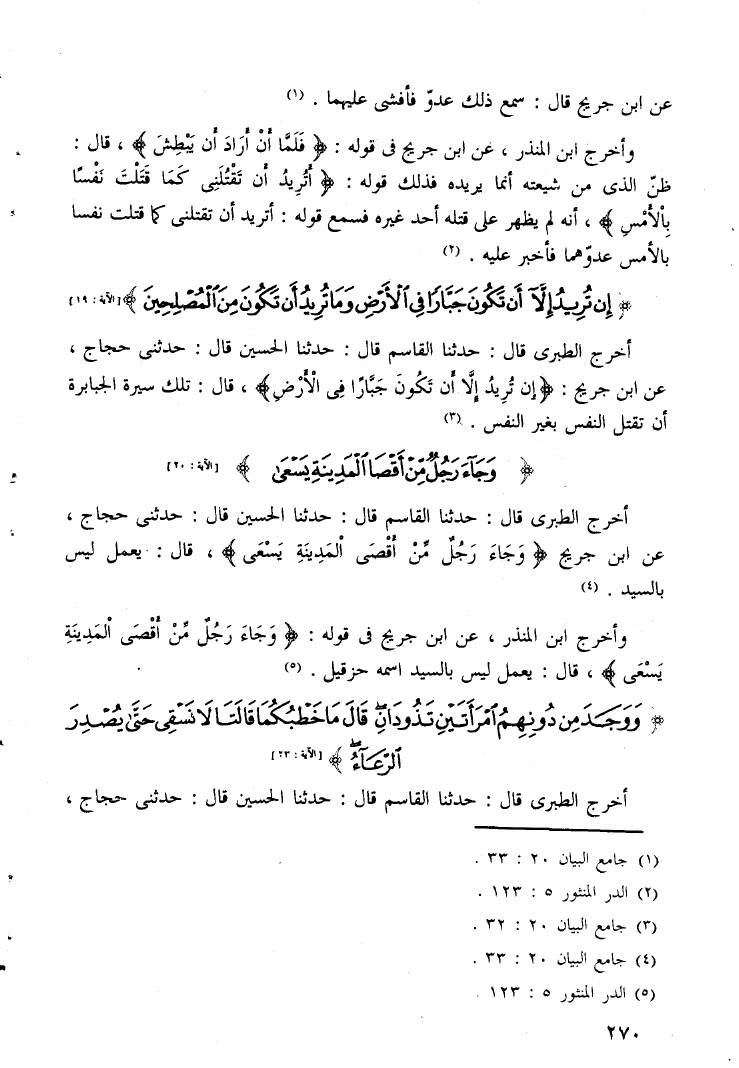 عن ابن جريج قال : سمع ذلك عدوّ فأفشى عليهما . (١)
وأخرج ابن المنذر ، عن ابن جريج فى قوله : ﴿ فَلَمَّا أَنْ أَرَادَ أَن يَبْطِشَ ﴾ ، قال :
ظنّ الذى من شيعته أنما يريده فذلك قوله : ﴿ أَتُرِيدُ أَن تَقْتُلَنِى كَمَا قَتَلْتَ نَفْسًا
بِالْأَمْسِ ﴾ ، أنه لم يظهر على قتله أحد غيره فسمع قوله : أتريد أن تقتلنى كما قتلت نفسا
بالأمس عدوّهما فأخبر عليه . (٢)
﴿ إِن تُرِيدُ إِلَّآ أَن تَكُونَ جَبَّارًا فِى ٱلْأَرْضِ وَمَا تُرِيدُ أَن تَكُونَ مِنَ ٱلْمُصْلِحِينَ ﴾ [الآية : ١٩]
أخرج الطبرى قال : حدثنا القاسم قال : حدثنا الحسين قال : حدثنى حجاج ،
عن ابن جريج : ﴿ إِن تُرِيدُ إِلَّا أَن تَكُونَ جَبَّارًا فِى الْأَرْضِ ﴾ ، قال : تلك سيرة الجبابرة
أن تقتل النفس بغير النفس . (٣)
﴿ وَجَآءَ رَجُلٌ مِّنْ أَقْصَا ٱلْمَدِينَةِ يَسْعَىٰ ﴾ [الآية : ٢٠]
أخرج الطبرى قال : حدثنا القاسم قال : حدثنا الحسين قال : حدثنى حجاج ،
عن ابن جريج ﴿ وَجَاءَ رَجُلٌ مِّنْ أَقْصَى الْمَدِينَةِ يَسْعَى ﴾ ، قال : يعمل ليس
بالسيد . (٤)
وأخرج ابن المنذر ، عن ابن جريج فى قوله : ﴿ وَجَاءَ رَجُلٌ مِّنْ أَقْصَى الْمَدِينَةِ
يَسْعَى ﴾ ، قال : يعمل ليس بالسيد اسمه حزقيل . (٥)
﴿ وَوَجَدَ مِن دُونِهِمُ ٱمْرَأَتَيْنِ تَذُودَانِ قَالَ مَا خَطْبُكُمَا قَالَتَا لَا نَسْقِى حَتَّىٰ يُصْدِرَ
ٱلرِّعَآءُ ﴾ [الآية : ٢٣]
أخرج الطبرى قال : حدثنا القاسم قال : حدثنا الحسين قال : حدثنى حجاج ،
(١) جامع البيان ٢٠ : ٣٣ .
(٢) الدر المنثور ٥ : ١٢٣ .
(٣) جامع البيان ٢٠ : ٣٢ .
(٤) جامع البيان ٢٠ : ٣٣ .
(٥) الدر المنثور ٥ : ١٢٣ .
٢٧٠